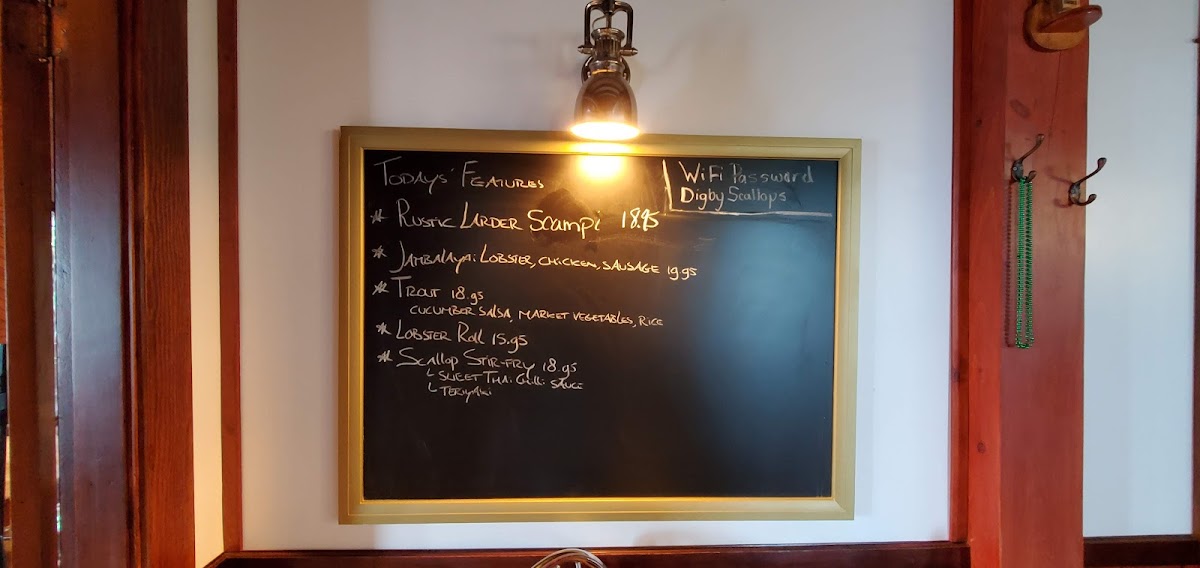 TODAYS' FEATURES
WiFi Password
Digby Scallops
* RUSTIC LARDER Scampi 18.95
* JAMBALAYA: LOBSTER, CHICKEN, SAUSAGE 19.95
* TROUT 18.95
CUCUMBER SALSA, MARKET VEGETABLES, RICE
* LOBSTER ROLL 15.95
* SCALLOP STIR-FRY 18.95
└ SWEET THAI Chilli SAUCE
└ TERIYAKI